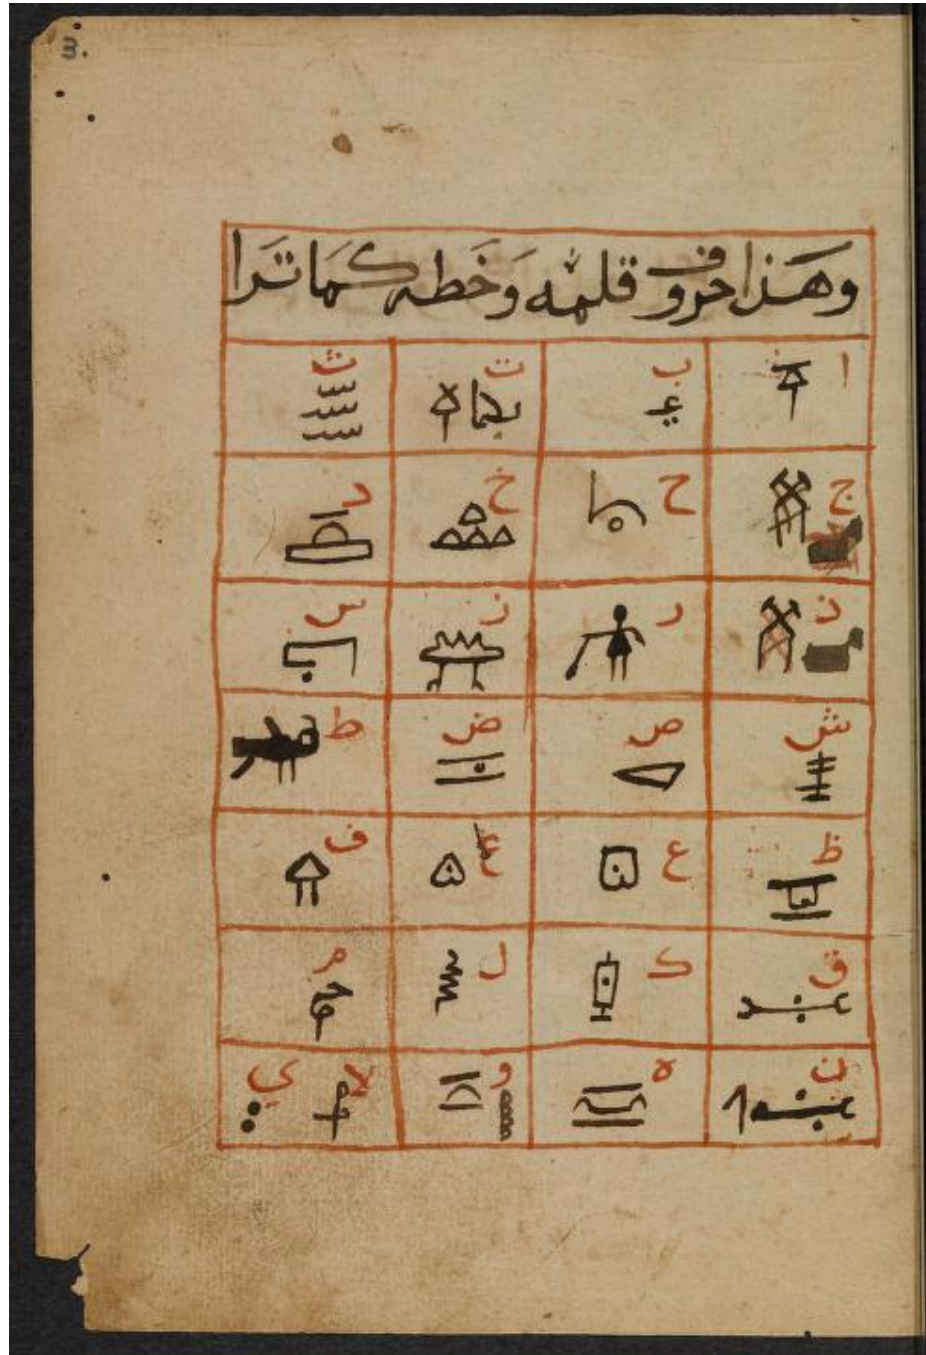 3.
وَهَذا حروف قلمه وَخَطه كمَا تَرَا
ا ب ت ث
ج ح خ د
ذ ر ز س
ش ص ض ط
ظ ع غ ف
ق ك ل م
ن ه و لا ي